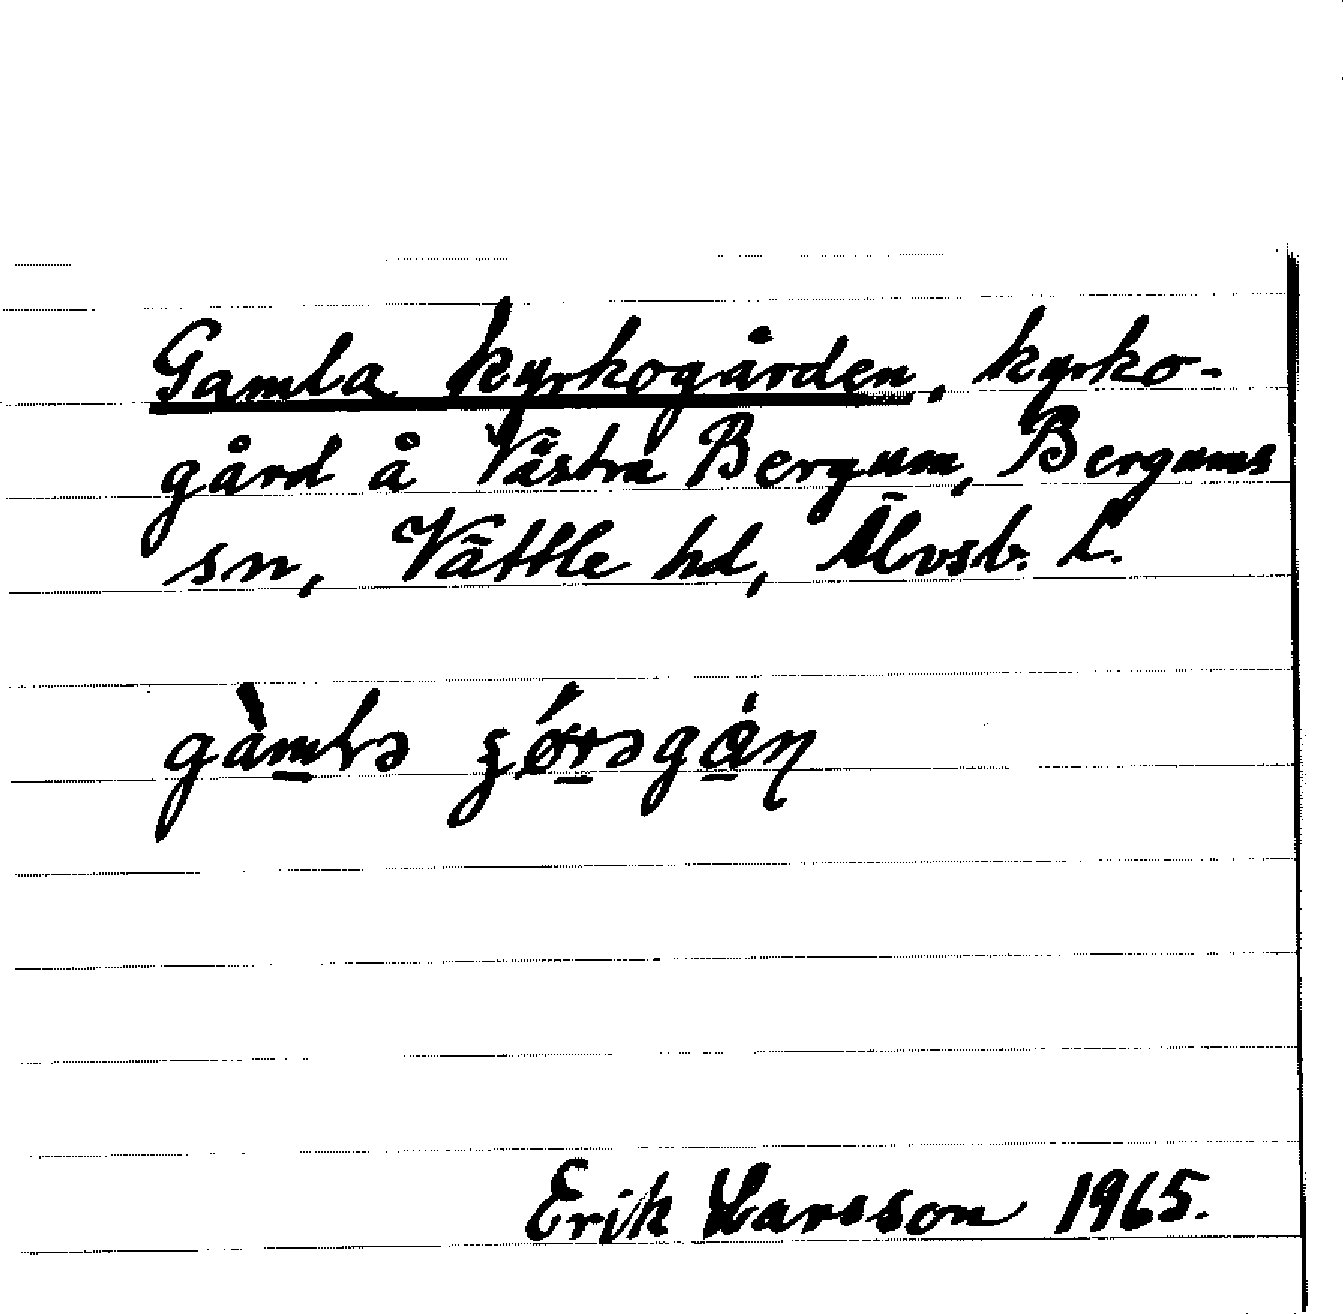 Gamla kyrkogården, kyrko-
gård å Västra Bergum, Bergums
sn, Vättle hd, Älvsb. L.
Erik Larsson 1965.